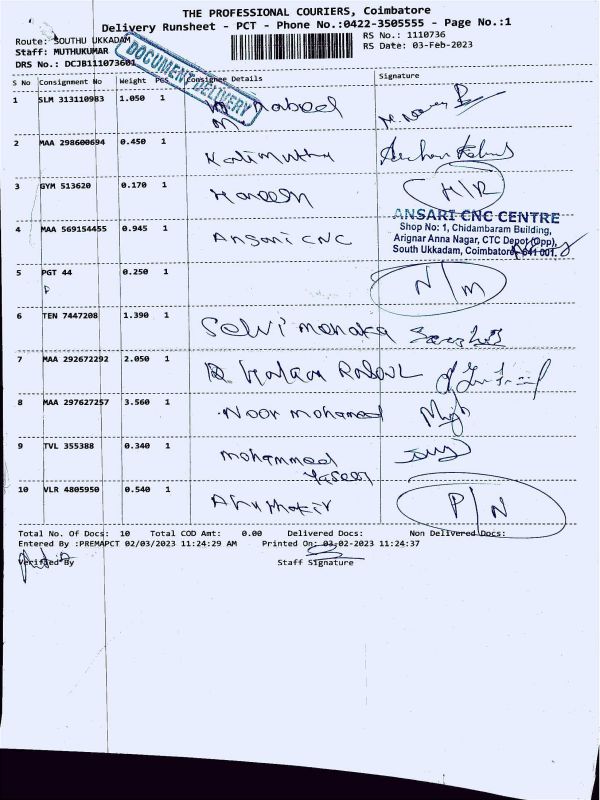 THE PROFESSIONAL COURIERS, Coimbatore
Delivery Runsheet - PCT - Phone No.:0422-3505555 - Page No.:1
Route: SOUTHU UKKADAM
RS No.: 1110736
Staff: MUTHUKUMAR
RS Date: 03-Feb-2023
DRS No.: DCJB111073601
DOCUMENT DELIVERY
S No Consignment No Weight PCS Consignee Details Signature
1 SLM 313110983 1.050 1 Nabeel
2 MAA 298600694 0.450 1 Kalimuthu
3 GYM 513620 0.170 1 Haneesh H/R
ANSARI CNC CENTRE
Shop No: 1, Chidambaram Building,
4 MAA 569154455 0.945 1 Ansari CNC Arignar Anna Nagar, CTC Depot (Opp),
South Ukkadam, Coimbatore - 641 001.
5 PGT 44 0.250 1 N/M
P
6 TEN 7447208 1.390 1 Selvi menaka
7 MAA 292672292 2.050 1
8 MAA 297627257 3.560 1 Noor mohamed
9 TVL 355388 0.340 1 mohammed
Yaseer
10 VLR 4805950 0.540 1 P/N
Total No. Of Docs: 10 Total COD Amt: 0.00 Delivered Docs: Non Delivered Docs:
Entered By :PREMAPCT 02/03/2023 11:24:29 AM Printed On: 03-02-2023 11:24:37
Verified By Staff Signature